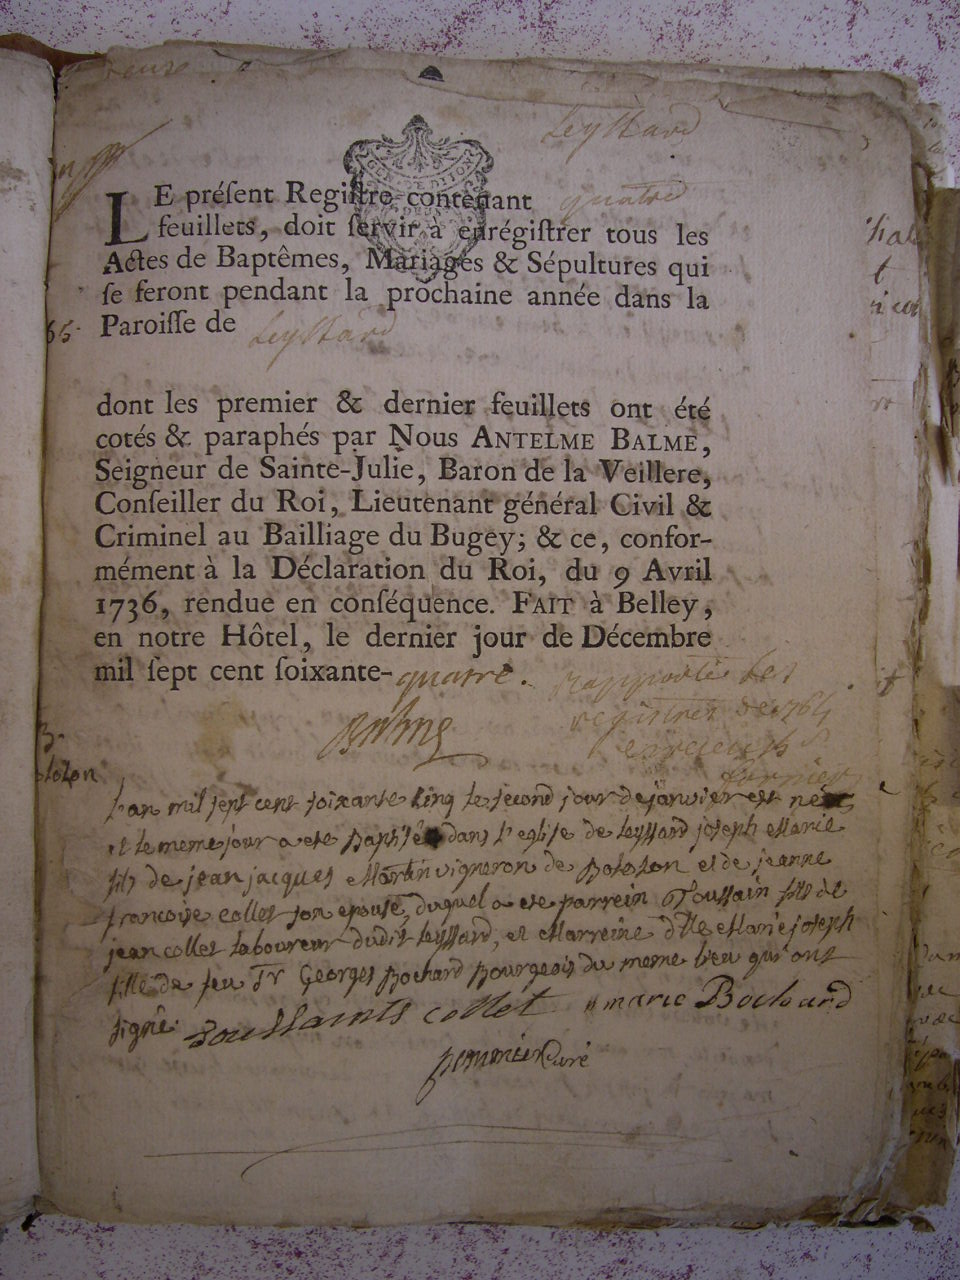 Leyssard
LE préſent Regiſtre contenant quatre
feuillets, doit ſervir à enrégiſtrer tous les
Actes de Baptêmes, Mariages & Sépultures qui
ſe feront pendant la prochaine année dans la
Paroiſſe de Leyssard
dont les premier & dernier feuillets ont été
cotés & paraphés par Nous ANTELME BALME,
Seigneur de Sainte-Julie, Baron de la Veillere,
Conſeiller du Roi, Lieutenant général Civil &
Criminel au Bailliage du Bugey; & ce, confor-
mément à la Déclaration du Roi, du 9 Avril
1736, rendue en conſéquence. FAIT à Belley,
en notre Hôtel, le dernier jour de Décembre
mil ſept cent ſoixante-quatre.
Balme
rapporté les
registres de 1764
L'an mil sept cent soixante cinq le second jour de janvier est né
et le meme jour a ete baptisé dans l'eglise de leyssard joseph Marie
fils de jean jacques Martin vigneron de Bolozon et de jeanne
francoise collet son epouse, duquel a ete parrein Toussain fils de
jean collet laboureur dudit leyssard, et Marreine dlle Marie joseph
fille de feu Sr Georges Bochard Bourgeois du meme lieu qui ont
signé. Toussaints collet marie Bochard
pommier Curé